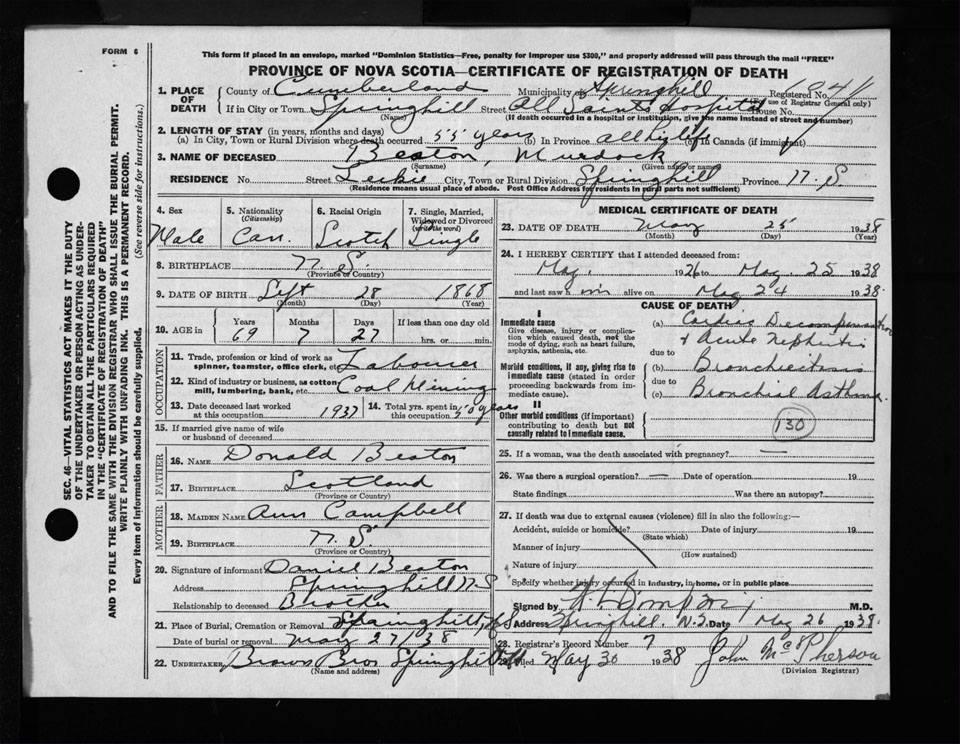 FORM 6
This form if placed in an envelope, marked "Dominion Statistics—Free, penalty for improper use $300," and properly addressed will pass through the mail "FREE"
PROVINCE OF NOVA SCOTIA—CERTIFICATE OF REGISTRATION OF DEATH
1. PLACE OF DEATH
County of Cumberland Municipality of Springhill Registered No.
(For use of Registrar General only)
If in City or Town Springhill Street All Saints Hospital House No.
(Name) (If death occurred in a hospital or institution, give the name instead of street and number)
2. LENGTH OF STAY (in years, months and days)
(a) In City, Town or Rural Division where death occurred 55 years (b) In Province all his life (c) In Canada (if immigrant)
3. NAME OF DECEASED Beaton, Murdock
(Surname) (Given name or names)
RESIDENCE No. Street Leckie City, Town or Rural Division Springhill Province N. S
(Residence means usual place of abode. Post Office Address for residents in rural parts not sufficient)
4. Sex Male
5. Nationality (Citizenship) Can.
6. Racial Origin Scotch
7. Single, Married, Widowed or Divorced (write the word) Single
8. BIRTHPLACE N. S.
(Province or Country)
9. DATE OF BIRTH Sept 28 1868
(Month) (Day) (Year)
10. AGE in Years 69 Months 7 Days 27 If less than one day old hrs. or min.
OCCUPATION
11. Trade, profession or kind of work as spinner, teamster, office clerk, etc. Labourer
12. Kind of industry or business, as cotton mill, lumbering, bank, etc. Coal Mining
13. Date deceased last worked at this occupation 1937
14. Total yrs. spent in this occupation 50 years
15. If married give name of wife or husband of deceased
FATHER
16. NAME Donald Beaton
17. BIRTHPLACE Scotland
(Province or Country)
MOTHER
18. MAIDEN NAME Ann Campbell
19. BIRTHPLACE N. S.
(Province or Country)
20. Signature of informant Daniel Beaton
Address Springhill N.S
Relationship to deceased Brother
21. Place of Burial, Cremation or Removal Springhill N.S
Date of burial or removal May 27/38
22. UNDERTAKER Brown Bros Springhill
(Name and address)
MEDICAL CERTIFICATE OF DEATH
23. DATE OF DEATH May 25 1938
(Month) (Day) (Year)
24. I HEREBY CERTIFY that I attended deceased from:
May, 1926 to May 25 1938
and last saw him alive on May 24 1938.
CAUSE OF DEATH
I
Immediate cause
Give disease, injury or complication which caused death, not the mode of dying, such as heart failure, asphyxia, asthenia, etc.
Morbid conditions, if any, giving rise to immediate cause (stated in order proceeding backwards from immediate cause).
II
Other morbid conditions (if important) contributing to death but not causally related to immediate cause.
(a) Cardiac Decompensation
+ Acute Nephritis
due to
(b) Bronchiectosis
due to
(c) Bronchial Asthma
130
25. If a woman, was the death associated with pregnancy? —
26. Was there a surgical operation? — Date of operation 19
State findings Was there an autopsy?
27. If death was due to external causes (violence) fill in also the following:—
Accident, suicide or homicide? Date of injury 19
(State which)
Manner of injury
(How sustained)
Nature of injury
Specify whether injury occurred in industry, in home, or in public place
Signed by M.D.
Address Springhill, N.S. Date May 26 1938.
28. Registrar's Record Number 7
29. Filed May 30 1938 John McPherson
(Division Registrar)
SEC. 46—VITAL STATISTICS ACT MAKES IT THE DUTY
OF THE UNDERTAKER OR PERSON ACTING AS UNDER-
TAKER TO OBTAIN ALL THE PARTICULARS REQUIRED
IN THE "CERTIFICATE OF REGISTRATION OF DEATH"
AND TO FILE THE SAME WITH THE DIVISION REGISTRAR WHO SHALL ISSUE THE BURIAL PERMIT.
WRITE PLAINLY WITH UNFADING INK. THIS IS A PERMANENT RECORD.
Every item of information should be carefully supplied. (See reverse side for instructions.)